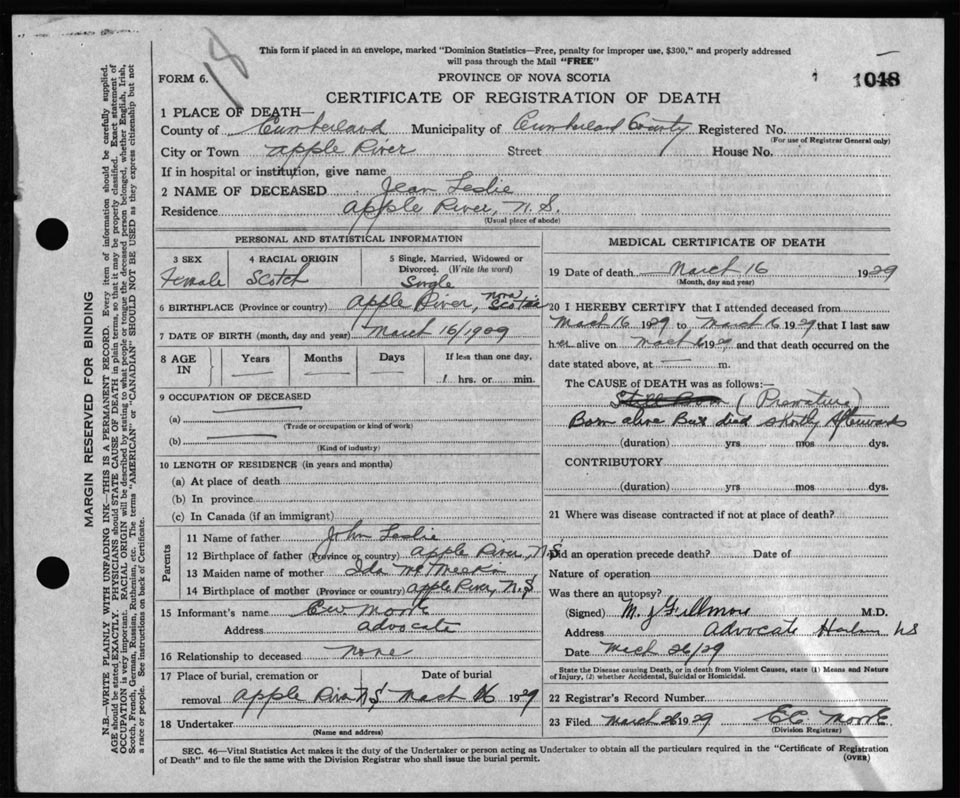 18
This form if placed in an envelope, marked "Dominion Statistics—Free, penalty for improper use, $300," and properly addressed
will pass through the Mail "FREE"
FORM 6.
PROVINCE OF NOVA SCOTIA
1048
CERTIFICATE OF REGISTRATION OF DEATH
1 PLACE OF DEATH—
County of Cumberland Municipality of Cumberland County Registered No.
(For use of Registrar General only)
City or Town Apple River Street House No.
If in hospital or institution, give name
2 NAME OF DECEASED Jean Leslie
Residence Apple River, N.S.
(Usual place of abode)
PERSONAL AND STATISTICAL INFORMATION
3 SEX
Female
4 RACIAL ORIGIN
Scotch
5 Single, Married, Widowed or
Divorced. (Write the word)
Single
6 BIRTHPLACE (Province or country) Apple River, Nova Scotia
7 DATE OF BIRTH (month, day and year) March 16/1909
8 AGE IN
Years Months Days
If less than one day,
1 hrs. or min.
9 OCCUPATION OF DECEASED
(a)
(Trade or occupation or kind of work)
(b)
(Kind of industry)
10 LENGTH OF RESIDENCE (in years and months)
(a) At place of death
(b) In province
(c) In Canada (if an immigrant)
Parents
11 Name of father John Leslie
12 Birthplace of father (Province or country) Apple River, N.S
13 Maiden name of mother Ida
14 Birthplace of mother (Province or country) Apple River, N.S
15 Informant's name Moore
Address Advocate
16 Relationship to deceased none
17 Place of burial, cremation or Date of burial
removal Apple River N S March 16 1929
18 Undertaker
(Name and address)
MEDICAL CERTIFICATE OF DEATH
19 Date of death March 16 1929
(Month, day and year)
20 I HEREBY CERTIFY that I attended deceased from
March 16 1929 to March 16 1929 that I last saw
her alive on March 16 1929 and that death occurred on the
date stated above, at m.
The CAUSE of DEATH was as follows:—
Still Born (Premature)
Born alive But died shortly Afterwards
(duration) yrs mos dys.
CONTRIBUTORY
(duration) yrs mos dys.
21 Where was disease contracted if not at place of death?
Did an operation precede death? Date of
Nature of operation
Was there an autopsy?
(Signed) M. J Fillmore M.D.
Address Advocate Harbour NS
Date March 26/29
State the Disease causing Death, or in death from Violent Causes, state (1) Means and Nature
of Injury, (2) whether Accidental, Suicidal or Homicidal.
22 Registrar's Record Number
23 Filed March 26 1929 E C Moore
(Division Registrar)
SEC. 46—Vital Statistics Act makes it the duty of the Undertaker or person acting as Undertaker to obtain all the particulars required in the "Certificate of Registration
of Death" and to file the same with the Division Registrar who shall issue the burial permit.
(OVER)
MARGIN RESERVED FOR BINDING
N.B.—WRITE PLAINLY WITH UNFADING INK—THIS IS A PERMANENT RECORD. Every item of information should be carefully supplied.
AGE should be stated EXACTLY. PHYSICIANS should STATE CAUSE OF DEATH in plain terms, so that it may be properly classified. Exact statement of
OCCUPATION is very important. RACIAL ORIGIN will be described by stating to what people or tongue the deceased person belonged, whether English, Irish,
Scotch, French, German, Russian, Ruthenian, etc. The terms "AMERICAN" or "CANADIAN" SHOULD NOT BE USED as they express citizenship but not
a race or people. See instructions on back of Certificate.